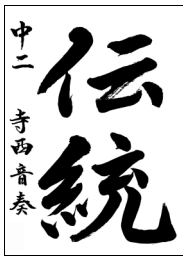 伝統
中二 寺西音奏